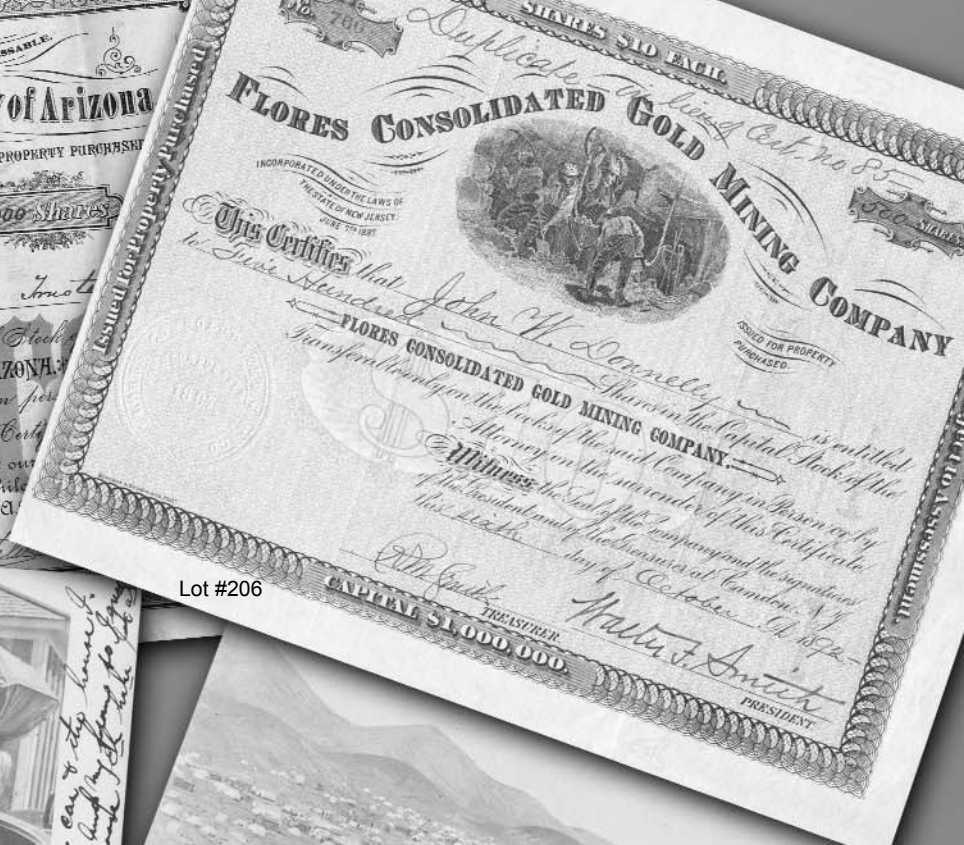 SSABLE.
y of Arizona
PROPERTY PURCHASE
000 Shares
Truste
Stock
ZONA.
Certi
our
SHARES $10 EACH.
No 700
Duplicate
Cert. no 85
FLORES CONSOLIDATED GOLD MINING COMPANY
INCORPORATED UNDER THE LAWS OF
THE STATE OF NEW JERSEY
JUNE 7TH 1887.
500 SHARES
ISSUED FOR PROPERTY
PURCHASED.
This Certifies that John W. Donnelly is entitled
to Five Hundred Shares in The Capital Stock of the
FLORES CONSOLIDATED GOLD MINING COMPANY.
Transferable only on the books of the said Company in Person or by
Attorney on the surrender of this Certificate
Witness the Seal of the Company and the signatures
of the President and of the Treasurer at Camden, N.J.
this sixth day of October A.D. 1892
TREASURER.
Walter F. Smith
PRESIDENT.
CAPITAL $1,000,000.
Issued for Property Purchased
Lot #206
car & the house I.